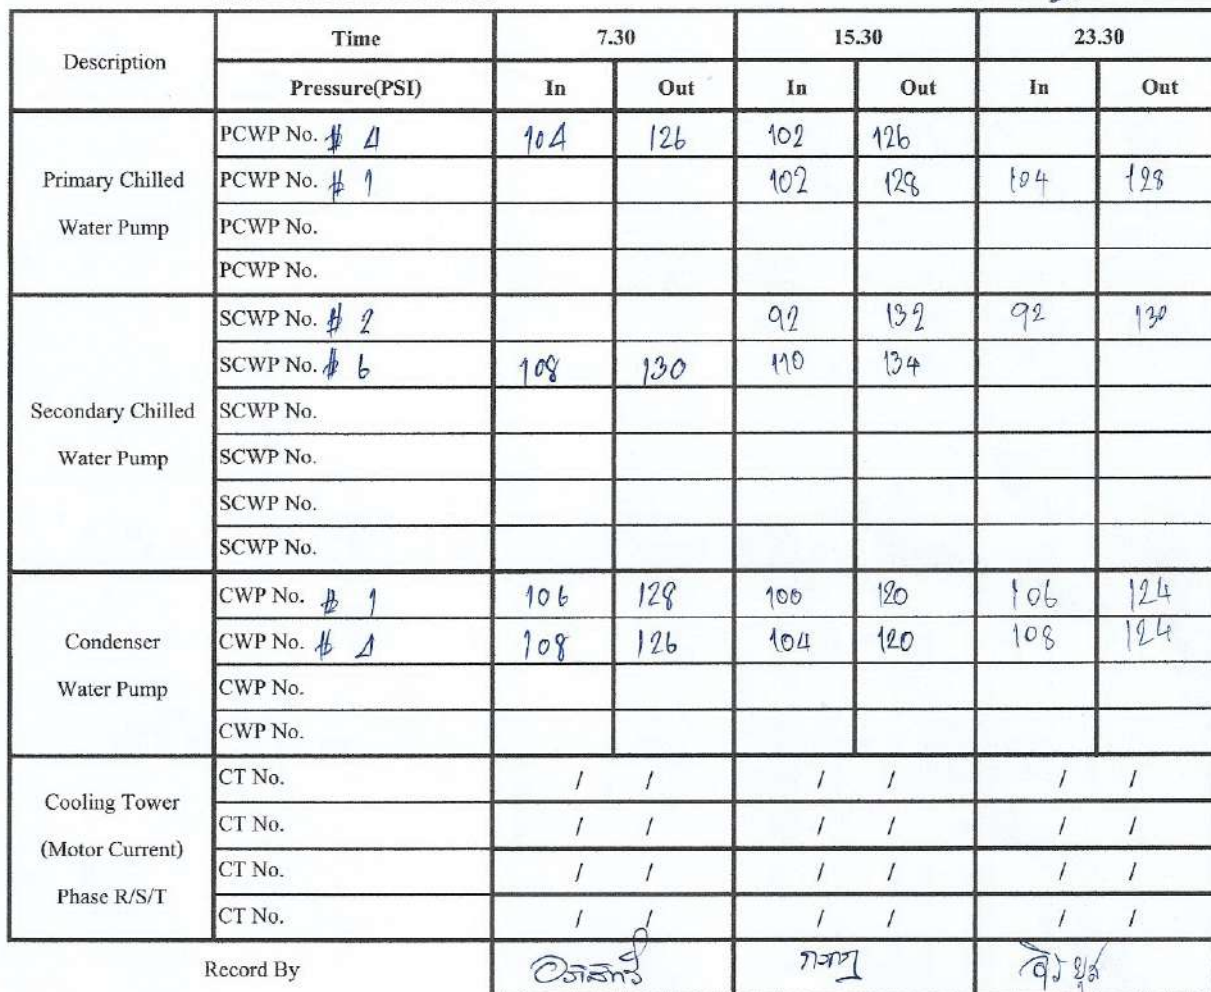 Description Time 7.30 15.30 23.30
Pressure(PSI) In Out In Out In Out
Primary Chilled Water Pump
PCWP No. # 4 104 126 102 126
PCWP No. # 1 102 128 104 128
PCWP No.
PCWP No.
Secondary Chilled Water Pump
SCWP No. # 2 92 132 92 130
SCWP No. # 6 108 130 110 134
SCWP No.
SCWP No.
SCWP No.
SCWP No.
Condenser Water Pump
CWP No. # 1 106 128 100 120 106 124
CWP No. # 4 108 126 104 120 108 124
CWP No.
CWP No.
Cooling Tower (Motor Current) Phase R/S/T
CT No. / / / / / /
CT No. / / / / / /
CT No. / / / / / /
CT No. / / / / / /
Record By